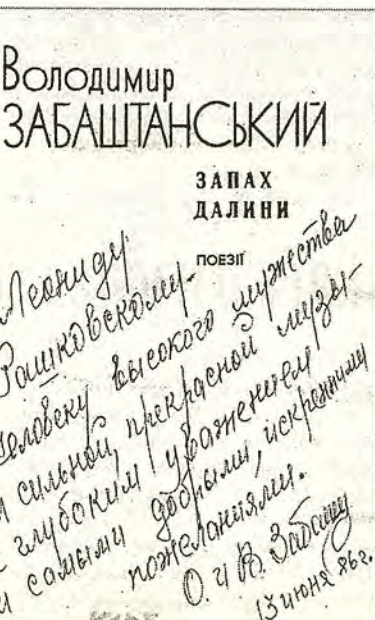 Володимир
ЗАБАШТАНСЬКИЙ
ЗАПАХ
ДАЛИНИ
ПОЕЗІЇ
Леониду
Рашковскому-
человеку высокого мужества
и сильной, прекрасной музы-
с глубоким уважением
и самыми добрыми, искренними
пожеланиями.
О. и В. Забашт
13 июня 86г.